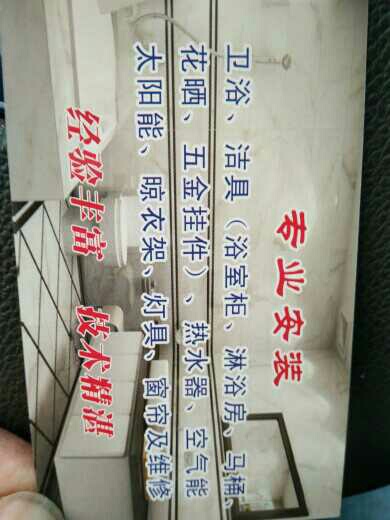 专业安装
卫浴、洁具（浴室柜、淋浴房、马桶、
花晒、五金挂件）、热水器、空气能
太阳能、晾衣架、灯具、窗帘及维修
经验丰富 技术精湛